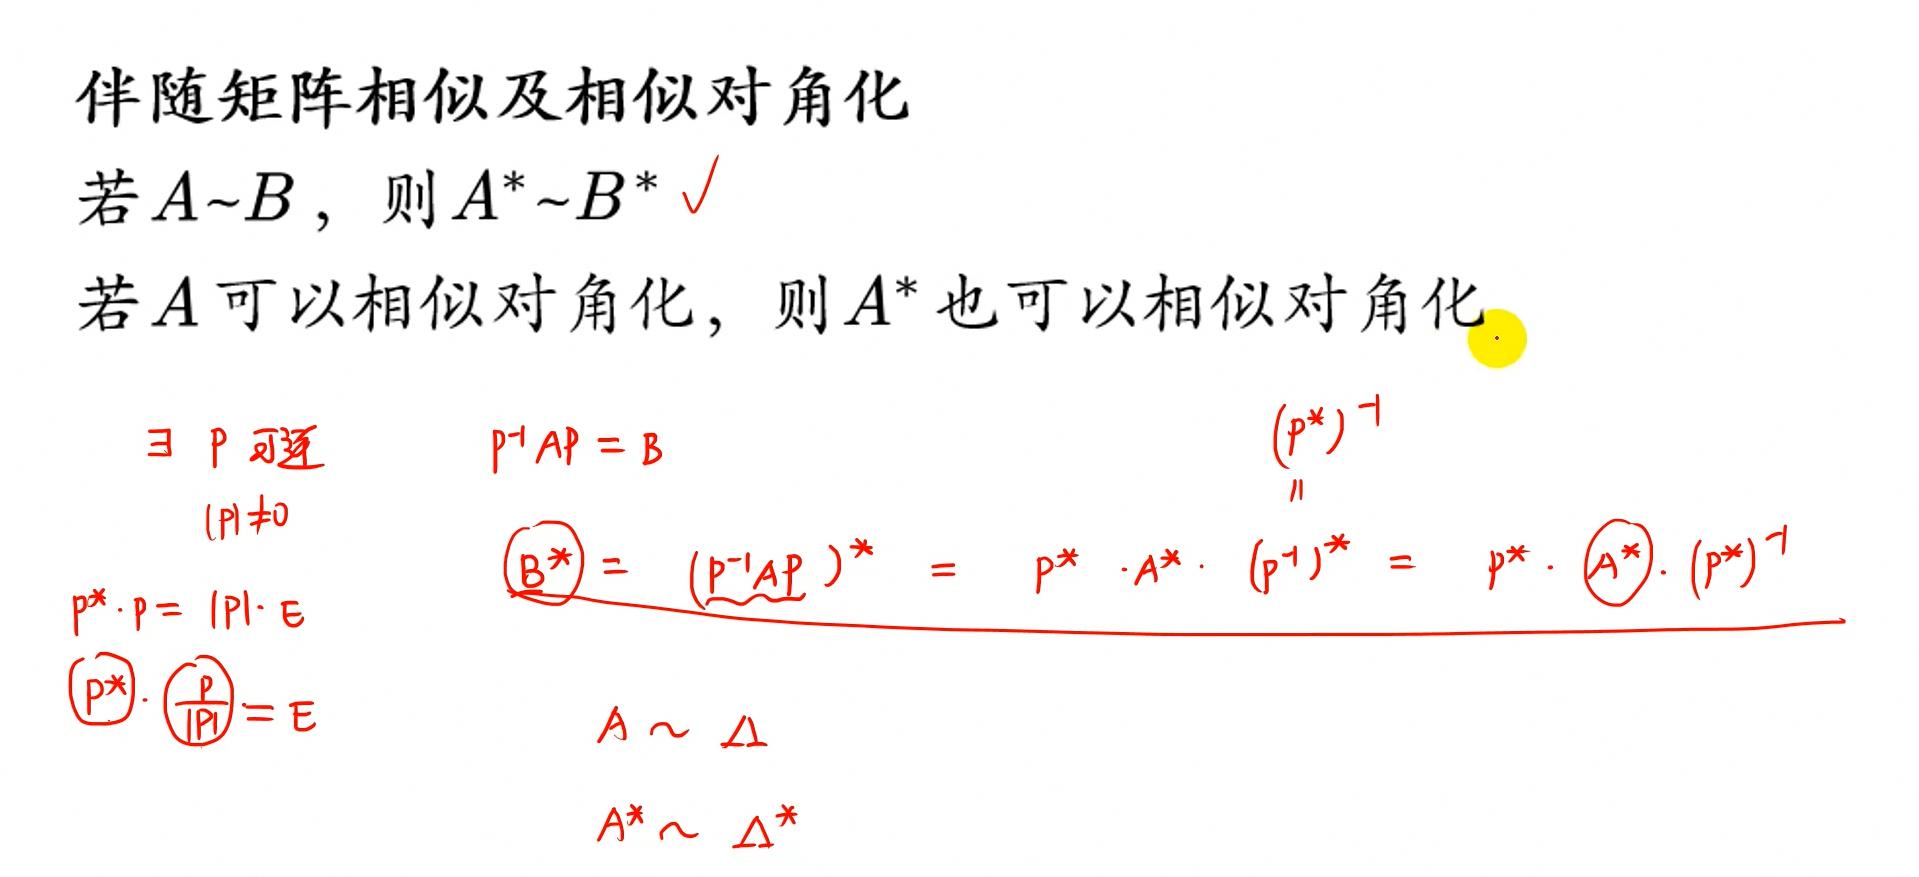 伴随矩阵相似及相似对角化
若A~B，则A*~B* ✓
若A可以相似对角化，则A*也可以相似对角化
∃ P 可逆
|P|≠0
P*·P = |P|·E
P*·P/|P| = E
P⁻¹AP = B
(P*)⁻¹
=
B* = (P⁻¹AP)* = P*·A*·(P⁻¹)* = P*·A*·(P*)⁻¹
A ~ Λ
A* ~ Λ*